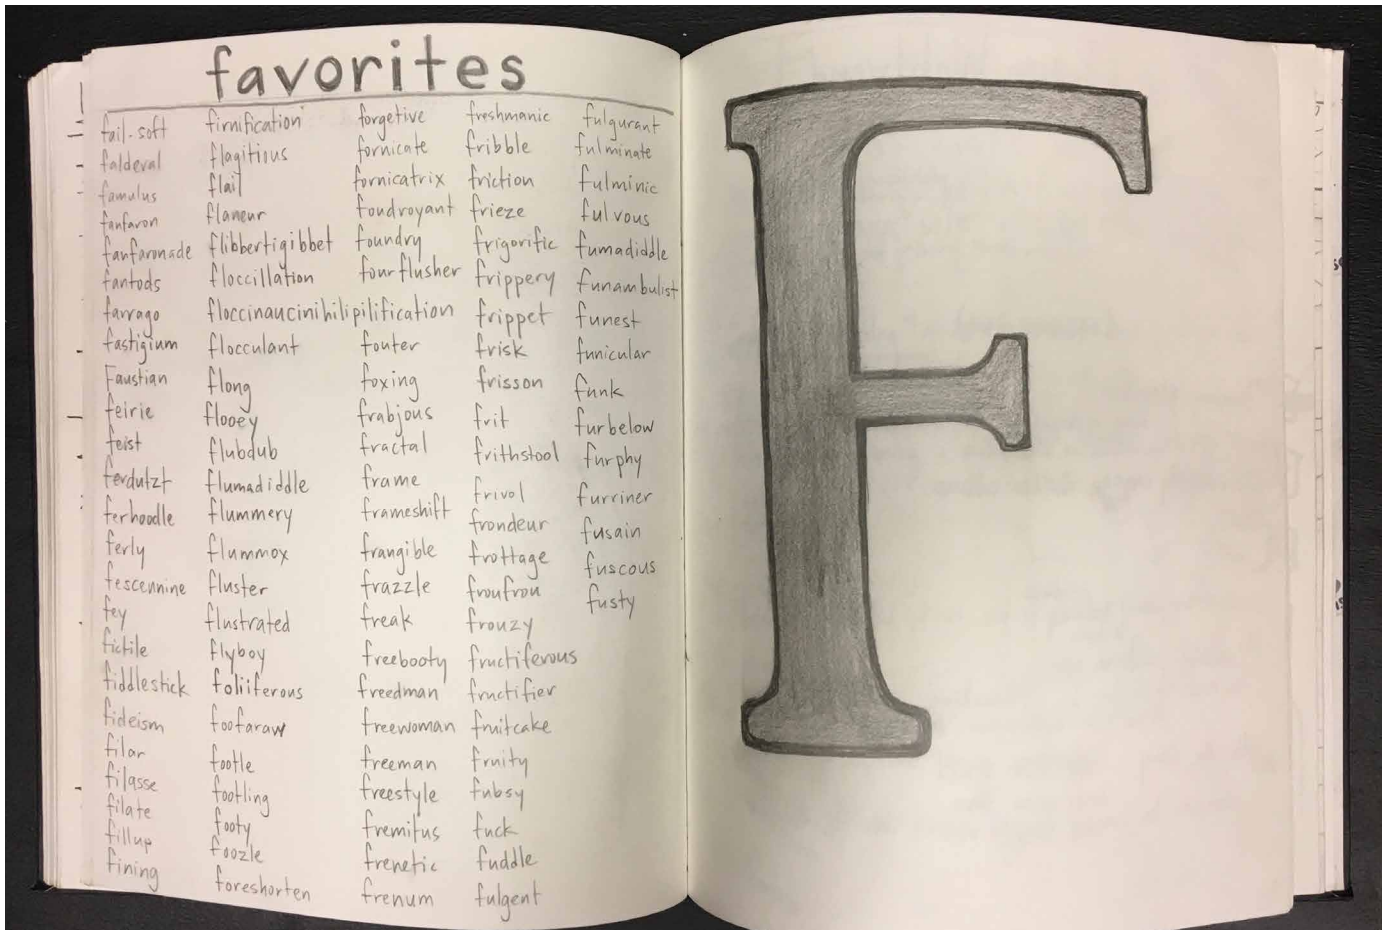 favorites
fail-soft
falderal
famulus
fanfaron
fanfaronade
fantods
farrago
fastigium
Faustian
feirie
feist
ferdutzt
ferhoodle
ferly
fescennine
fey
fictile
fiddlestick
fideism
filar
filasse
filate
fillup
fining
firnification
flagitious
flail
flaneur
flibbertigibbet
floccillation
floccinaucinihilipilification
flocculant
flong
flooey
flubdub
flumadiddle
flummery
flummox
fluster
flustrated
flyboy
foliiferous
foofaraw
footle
footling
footy
foozle
foreshorten
forgetive
fornicate
fornicatrix
foudroyant
foundry
fourflusher
fouter
foxing
frabjous
fractal
frame
frameshift
frangible
frazzle
freak
freebooty
freedman
freewoman
freeman
freestyle
fremitus
frenetic
frenum
freshmanic
fribble
friction
frieze
frigorific
frippery
frippet
frisk
frisson
frit
frithstool
frivol
frondeur
frottage
froufrou
frouzy
fructiferous
fructifier
fruitcake
fruity
fubsy
fuck
fuddle
fulgent
fulgurant
fulminate
fulminic
fulvous
fumadiddle
funambulist
funest
funicular
funk
furbelow
furphy
furriner
fusain
fuscous
fusty
F